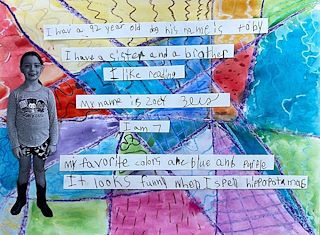 I hava a 92 year old dog his name is toby
I have a sister and a brother
I like reading
My name is Zoey
I am 7
My favorite colors are blue and purple
It looks funny when I spell hippopotamas